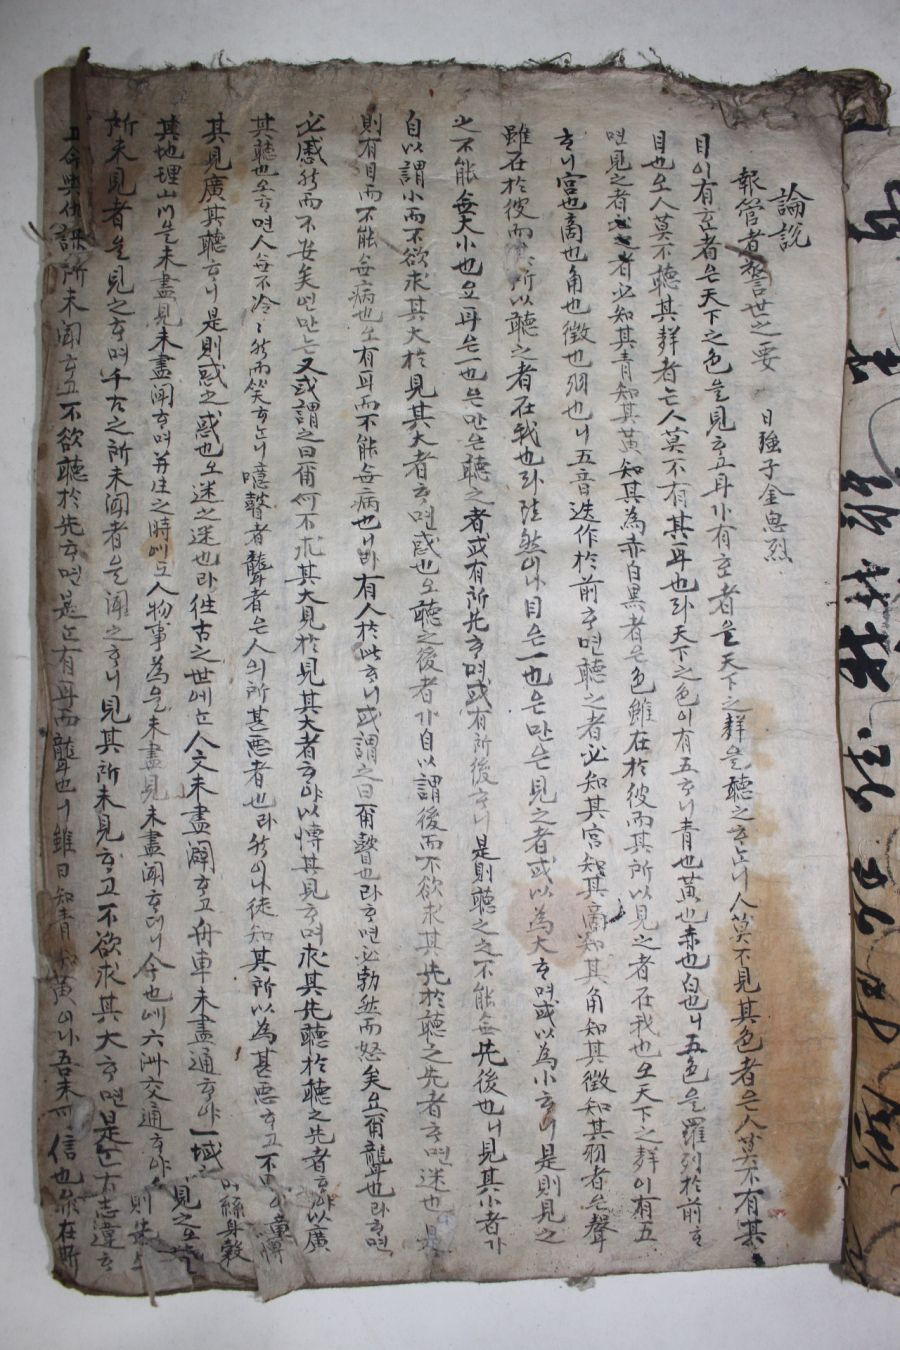 論說
報管者警世之要 日强子金思烈
目이有한者은天下之色을見하고耳가有한者은天下之聲을聽之하나니人莫不見其色者은人莫不有其
目也오人莫不聽其聲者는人莫不有其耳也라天下之色이有五하니青也黃也赤也白也니五色을羅列於前하
면見之者必知其青知其黃知其為赤白黑者은色雖在於彼而其所以見之者在我也오天下之聲이有五
하니宮也商也角也徵也羽也니五音迭作於前하면聽之者必知其宮知其商知其角知其徵知其羽者은聲
雖在於彼而所以聽之者在我也라雖然이나目은一也은만은見之者或以為大하며或以為小하니是則見之
之不能無大小也오耳은一也은만은聽之者或有所先하며或有所後하니是則聽之之不能無先後也니見其小者가
自以謂小而不欲求其大於見其大者하면惑也오聽之後者가自以謂後而不欲求其先於聽之先者하면迷也是
則有目而不能無病也오有耳而不能無病也니라有人於此하니或謂之曰爾瞽也라하면必勃然而怒矣오爾聾也라하면
必慼然而不安矣면만는又或謂之曰爾何不求其大見於見其大者하야以博其見하며求其先聽於聽之先者하야以廣
其聽也오하면人無不冷冷然而笑하나니噫瞽者聾者은人의所甚惡者也라然이나徒知其所以為甚惡하고不
其見廣其聽하니是則惑之惑也오迷之迷也라往古之世에는人文未盡闢하고舟車未盡通하야一域
其地理山川을未盡見未盡聞하며并生之時에도人物事為을未盡見未盡聞하더니今也에六洲交通하야
所未見者을見之하며千古之所未聞者을聞之하니見其所未見하고不欲求其大하면是는古志違
所未聞하고不欲聽於先하면是는有耳而聾也니雖曰知青知黃이나吾未可信也